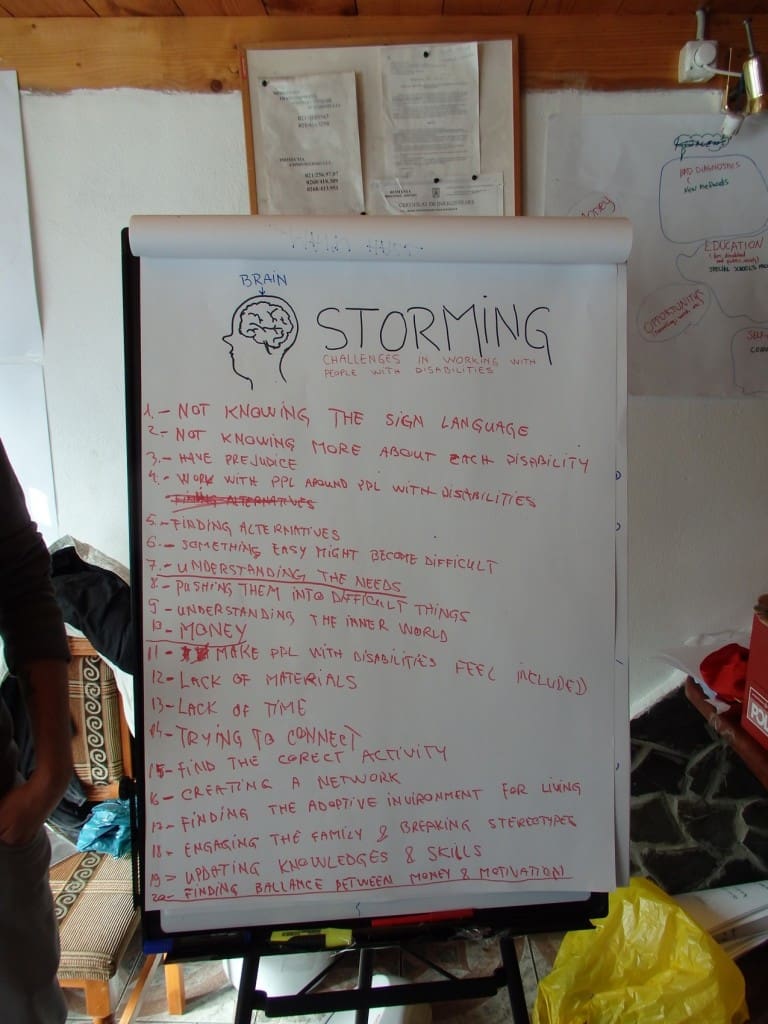 021/256.97.07
0268/418.309
0268/413.951
ROMANIA
CERTIFICAT DE INREGISTRARE
Money
BAD DIAGNOSTICS
NEW METHODS
EDUCATION
SPECIAL SCHOOLS
OPPORTUNITIES
BRAIN
STORMING
CHALLENGES IN WORKING WITH
PEOPLE WITH DISABILITIES
1.- NOT KNOWING THE SIGN LANGUAGE
2.- NOT KNOWING MORE ABOUT EACH DISABILITY
3.- HAVE PREJUDICE
4.- WORK WITH PPL AROUND PPL WITH DISABILITIES
FINDING ALTERNATIVES
5.- FINDING ALTERNATIVES
6.- SOMETHING EASY MIGHT BECOME DIFFICULT
7.- UNDERSTANDING THE NEEDS
8- PUSHING THEM INTO DIFFICULT THINGS
9- UNDERSTANDING THE INNER WORLD
10- MONEY
11- MAKE PPL WITH DISABILITIES FEEL INCLUDED
12- LACK OF MATERIALS
13- LACK OF TIME
14- TRYING TO CONNECT
15- FIND THE CORECT ACTIVITY
16- CREATING A NETWORK
17- FINDING THE ADOPTIVE INVIRONMENT FOR LIVING
18- ENGAGING THE FAMILY & BREAKING STEREOTYPES
19- UPDATING KNOWLEDGES & SKILLS
20- FINDING BALLANCE BETWEEN MONEY & MOTIVATION